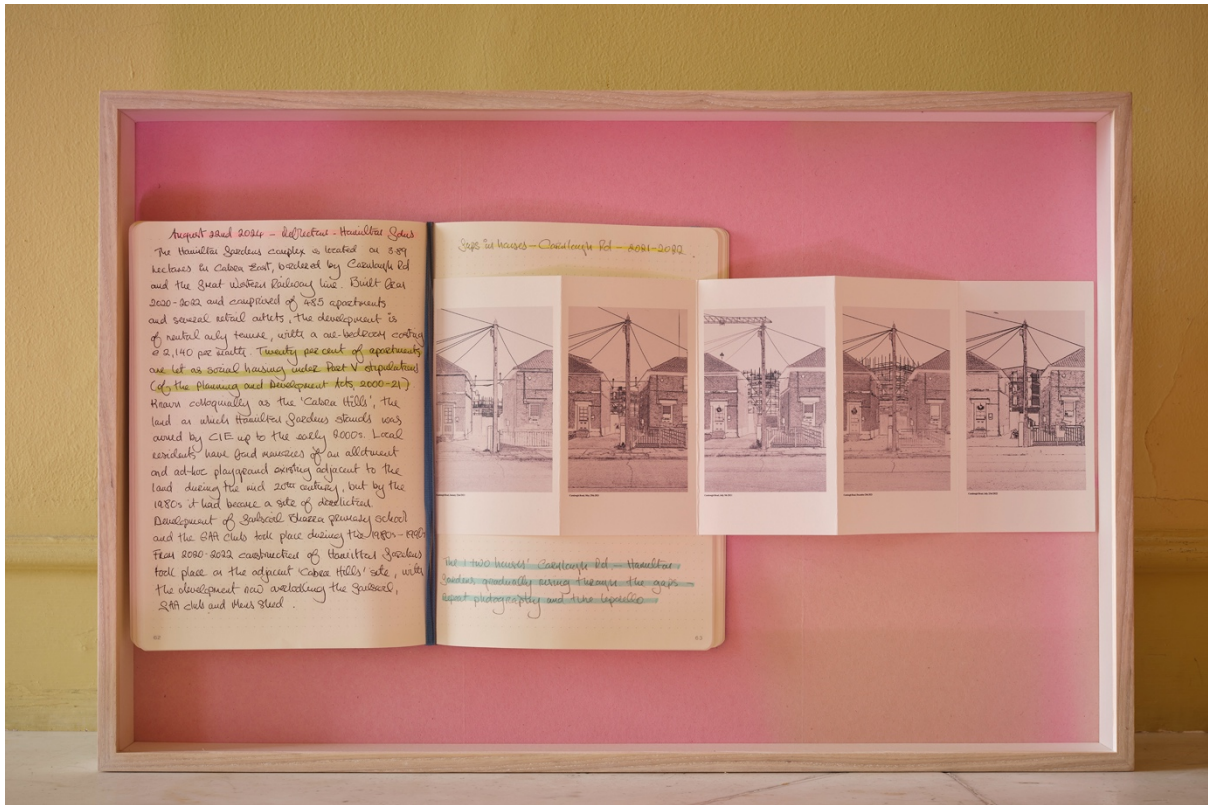 August 22nd 2024 – Reflection – Hamilton Gdns
The Hamilton Gardens complex is located on 3.89
hectares in Cabra East, bordered by Carnlough Rd
and the Great Western Railway line. Built bear
2020-2022 and comprised of 485 apartments
and several retail outlets, the development is
of rental only tenure, with a one-bedroom costing
2,140 per month. Twenty percent of apartments
are let as social housing under Part V stipulations
(of the Planning and Development Acts, 2000-21)
Known colloquially as the 'Cabra Hills', the
land on which Hamilton Gardens stands was
owned by CIE up to the early 2000s. Local
residents have fond memories of an allotment
and ad-hoc playground existing adjacent to the
land during the mid 20th century, but by the
1980s it had become a site of dereliction.
Development of Gaelscoil Bharra primary school
and the GAA club took place during the 1980s-1990s
From 2020-2022 construction of Hamilton Gardens
took place on the adjacent 'Cabra Hills' site, with
the development now overlooking the Gaelscoil,
GAA club and Mens Shed.
62
Gaps in houses – Carnlough Rd – 2021-2022.
The 'two houses' Carnlough Rd – Hamilton
Gardens gradually rising through the gaps
repeat photography and line leporello
63